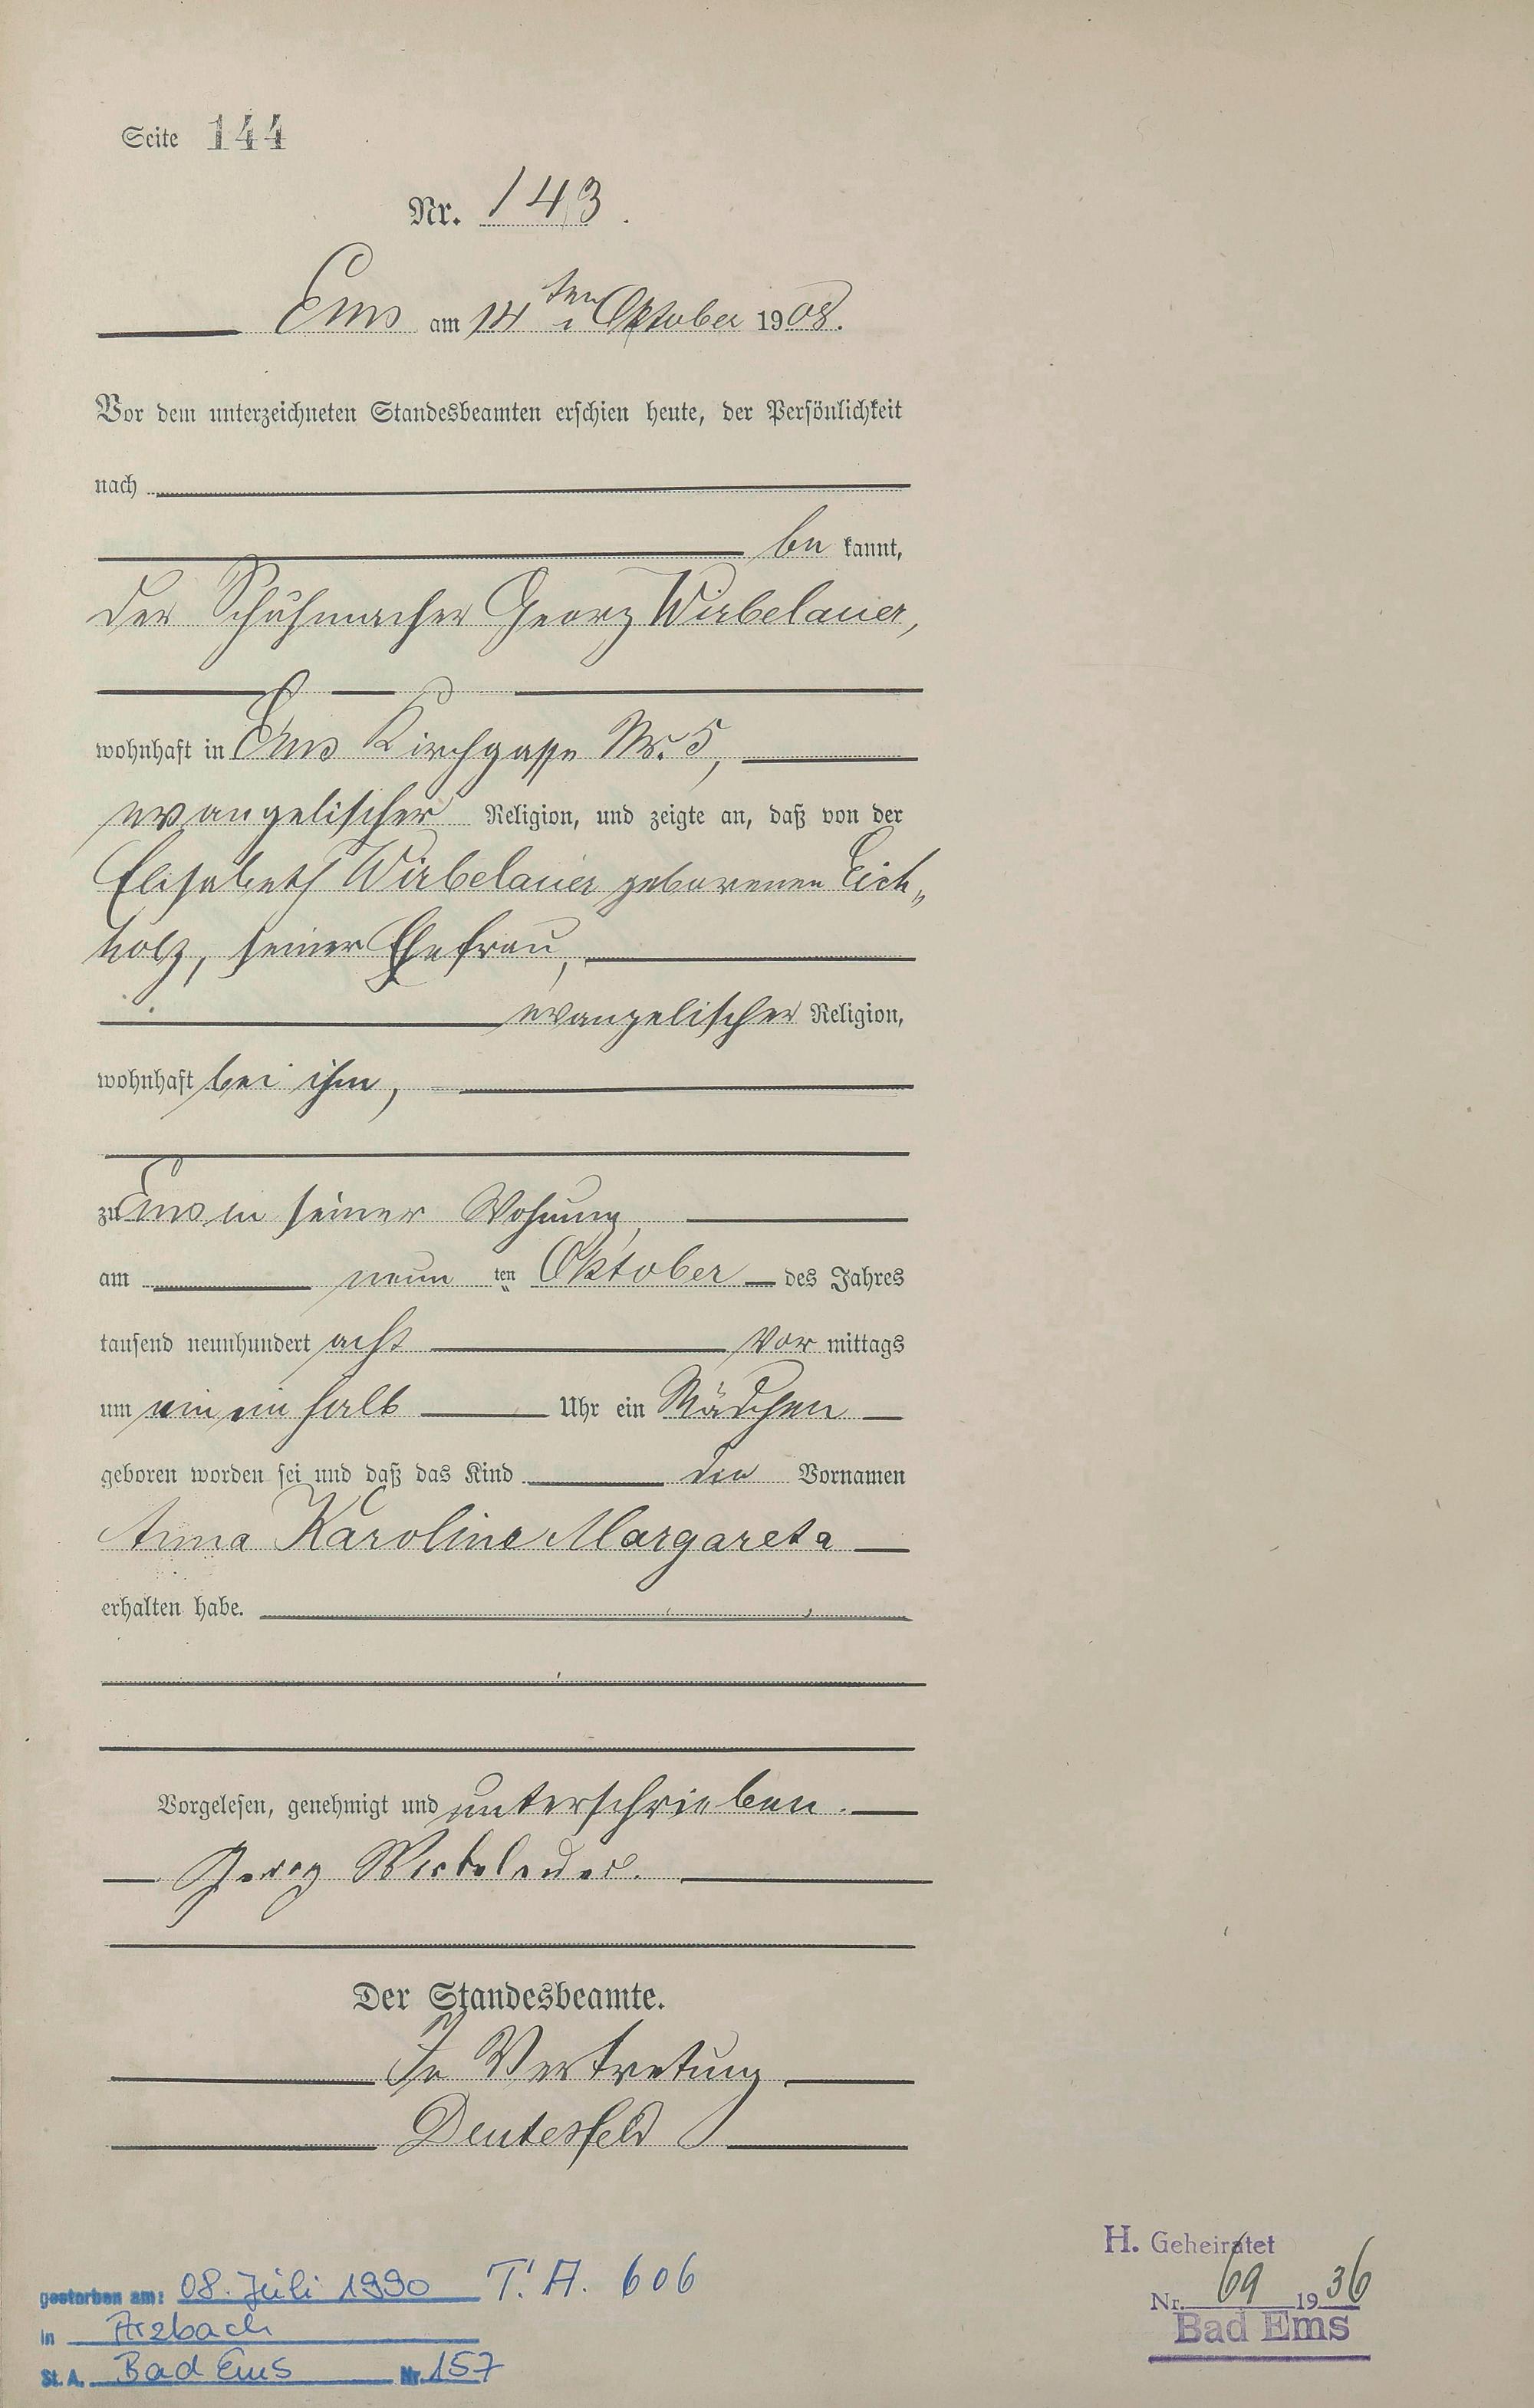 Seite 144
Nr. 143.
Ems am 14ten Oktober 1908.
Vor dem unterzeichneten Standesbeamten erschien heute, der Persönlichkeit
nach
be kannt,
der Schuhmacher Georg Wirbelauer,
wohnhaft in Ems Kirchgasse Nr. 5,
evangelischer Religion, und zeigte an, daß von der
Elisabeth Wirbelauer geborenen Eich„
holz, seiner Ehefrau,
evangelischer Religion,
wohnhaft bei ihm,
zu Ems in seiner Wohnung,
am neun ten Oktober des Jahres
tausend neunhundert acht Vor mittags
um ein ein halb Uhr ein Mädchen
geboren worden sei und daß das Kind die Vornamen
Anna Karoline Margareta
erhalten habe.
Vorgelesen, genehmigt und unterschrieben.
Georg Wirbelauer.
Der Standesbeamte.
In Vertretung
Deutesfeld
gestorben am: 08. Juli 1990 T. A. 606
in Arzbach
St. A. Bad Ems Nr. 157
H. Geheiratet
Nr. 69 1936
Bad Ems